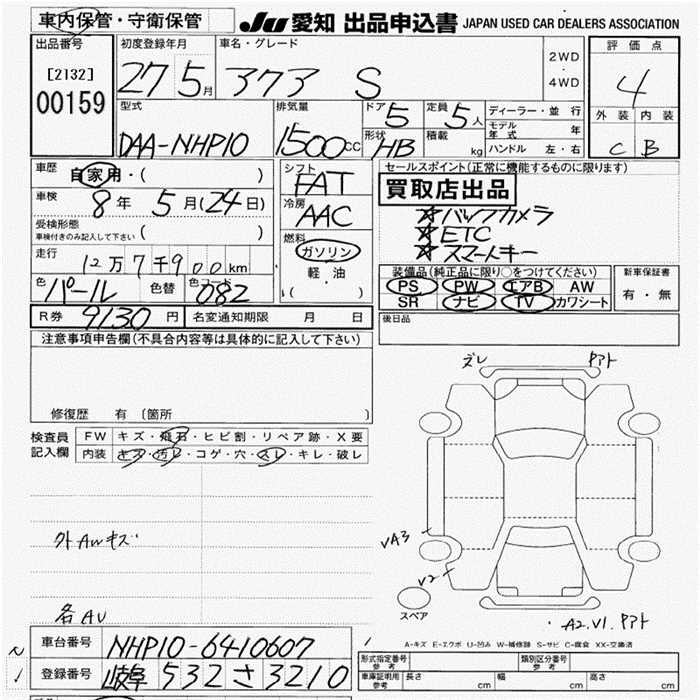 車内保管・守衛保管
JU 愛知 出品申込書 JAPAN USED CAR DEALERS ASSOCIATION
出品番号
[2132]
00159
初度登録年月
27 5月
車名・グレード
アクア S
2WD
・
4WD
評価点
4
外装 内装
C B
型式
DAA-NHP10
排気量
1500cc
ドア 5
形状 HB
定員 5人
積載 kg
ディーラー・並行
モデル年式 年
ハンドル 左・右
車歴
自家用・( )
車検
8年 5月(24日)
受検形態
車検付きのみ記入して下さい ( )
走行
12万7千900km
色 パール 色替 色コード 082
シフト
FAT
冷房
AAC
燃料
ガソリン
軽油
( )
セールスポイント(正常に機能するものに限ります)
買取店出品
☆バックカメラ
☆ETC
☆スマートキー
装備品(純正品に限り○をつけてください)
PS PW エアB AW
SR ナビ TV カワシート
新車保証書
有・無
R券 9130円 名変通知期限 月 日
後日品
注意事項申告欄(不具合内容等は具体的に記入して下さい)
修復歴 有 〔箇所 〕
検査員記入欄
FW キズ・飛石・ヒビ割・リペア跡・X要
内装 キズ・汚レ・コゲ・穴・スレ・キレ・破レ
外AWキズ
各AU
ズレ
VA3
V2
スペア
A2.V1.
A-キズ E-エクボ U-凹み W-補修跡 S-サビ C-腐食 XX-交換済
車台番号 NHP10-6410607
登録番号 岐阜 532 さ 3210
形式指定番号 参考
類別区分番号 参考
車庫証明用 参考 長さ cm 幅 cm 高さ cm